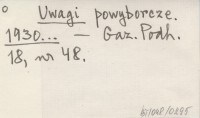 Uwagi powyborcze.
1930... — Gaz. Podh.
18, nr 48.